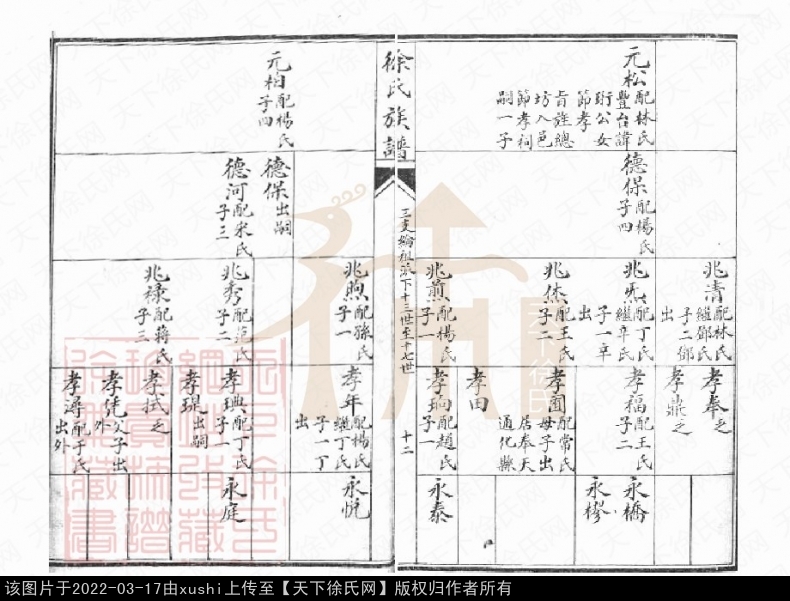 元松配林氏
豐台諱
珩公女
節孝
旨旌總
坊入邑
節孝祠
嗣一子
德保配楊氏
子四
兆清配林氏
繼鄧氏
子二鄧
出
兆炁配丁氏
繼辛氏
子一辛
出
兆杰配王氏
子二
兆煎配楊氏
子一
孝奉乏
孝鼎乏
孝福配王氏
子二
孝圊配常氏
母子出
居奉天
通化縣
孝田
孝珦配趙氏
子一
永橋
永樛
永泰
徐氏族譜
三支綸祖派下十三世至十七世
十二
元柏配楊氏
子四
德保出嗣
德河配宋氏
子三
兆煦配孫氏
子一
兆秀配范氏
子二
兆祿配蔣氏
子三
孝年配楊氏
繼丁氏
子一丁
出
孝璵配丁氏
子一
孝琨出嗣
孝拭乏
孝先父子出
外
孝潯配于氏
出外
永悅
永庭
天下徐氏网
该图片于2022-03-17由xushi上传至【天下徐氏网】版权归作者所有